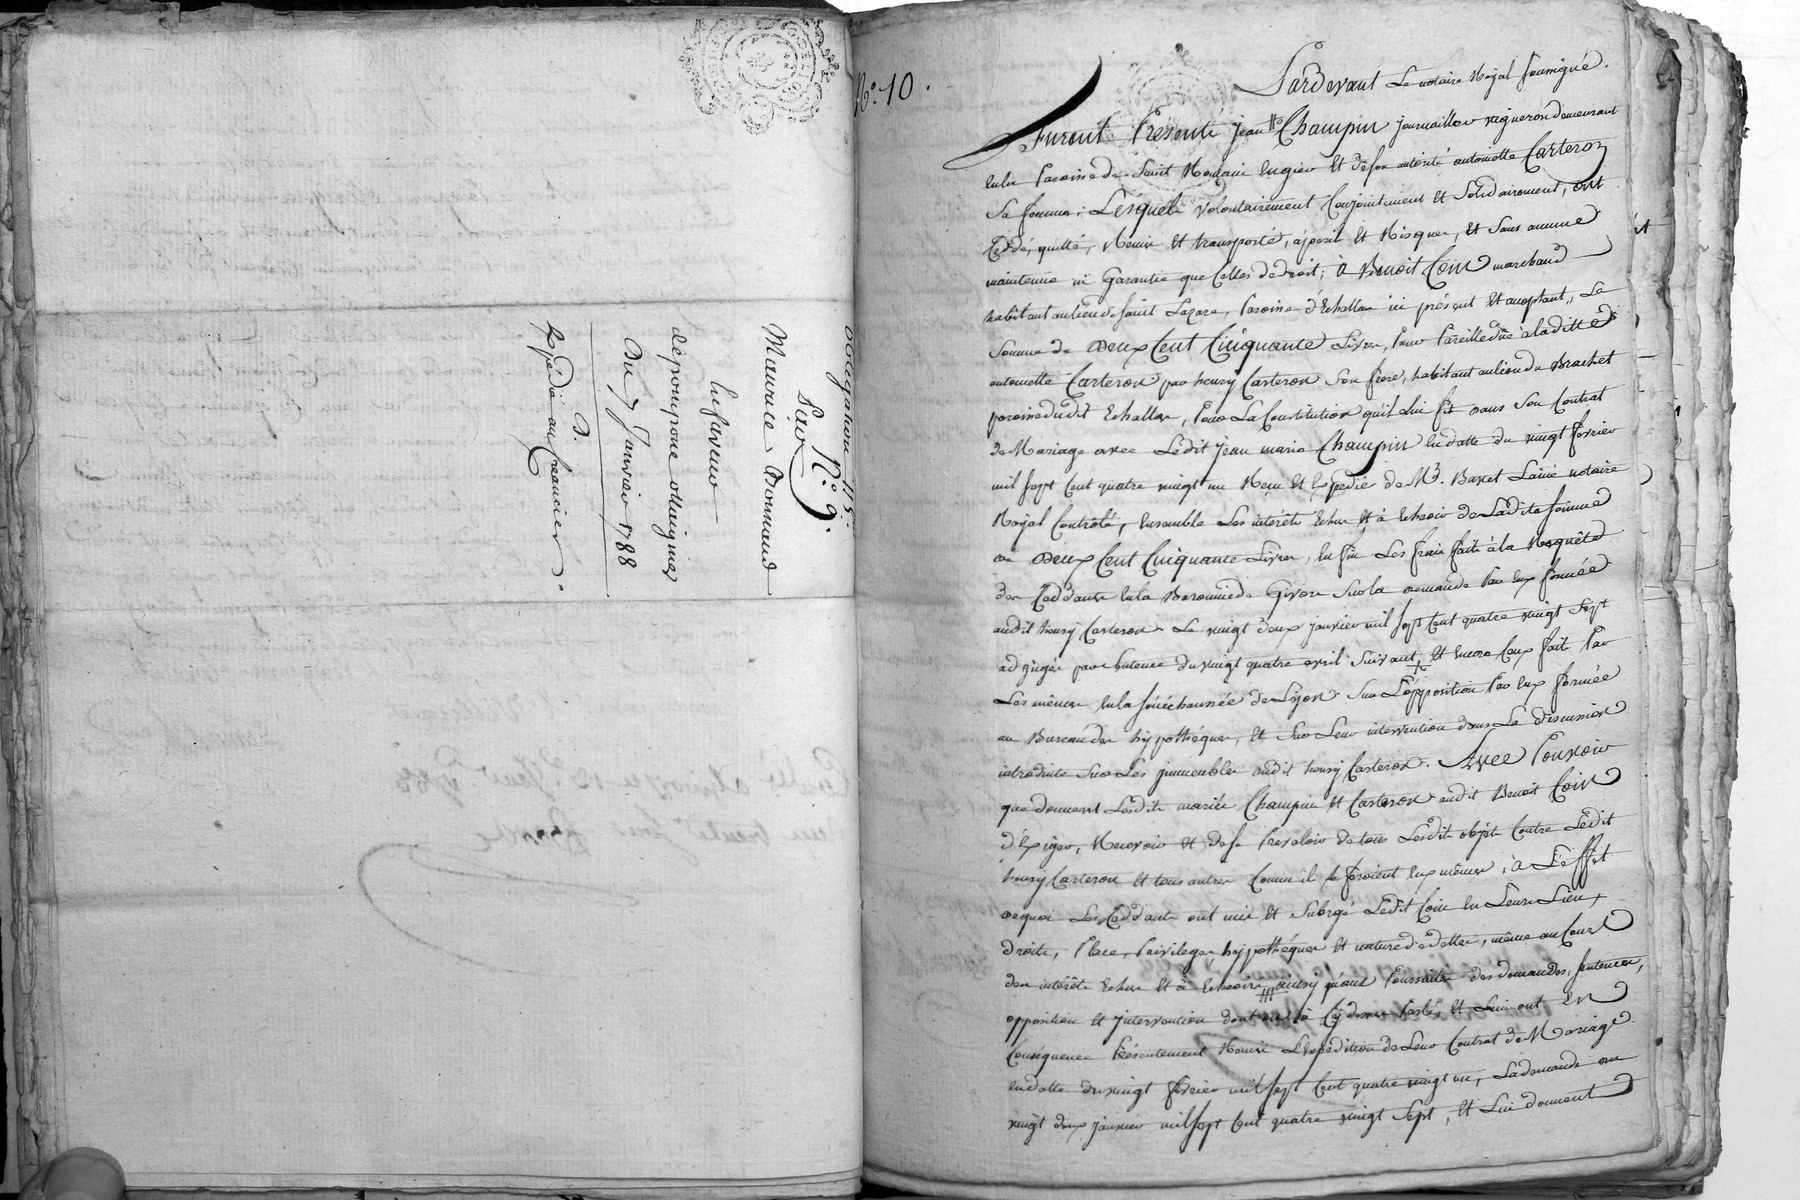 obligation 115#
N.° 9.
Pour
Maurice Bonnand
Lefaveure
de pompone Maigner
Du 7 Janvier 1788
D.
Expédié au Creancier.
N.° 10.
Pardevant Le notaire Royal soussigné.
Furent Présents jean M.ie Champin journaillier vigneron demeurant
en la Paroisse de Saint Romain engier Et de son autorité antoinette Carteron
Sa femme; Lesquels volontairement Conjointement et Solidairement, ont
Cédé, quitté, Remis Et transporté, àperil Et Risques, Et Sans aucune
maintenue ni Garantie que Celles de droit; à Benoit Coin marchand
habitant au lieu de Saint Lazare, Paroisse d'Echallas ici présent Et acceptant, La
Somme de Deux Cent Cinquante Livres, Pour Pareille due à Laditte
antoinette Carteron par henry Carteron Son frere, habitant au lieu du Brachet
paroisse dudit Echallas, Pour La Constitution qu'il Lui fit dans Son Contrat
de Mariage avec Ledit jean marie Champin En datte du vingt fevrier
mil Sept Cent quatre vingt un Reçu Et Expedié de M.e Barret L'ainé notaire
Royal Controlé, Ensemble Les intérêts Echus Et à Echeoir de Ladite Somme
de Deux Cent Cinquante Livres, En fin Les frais faits à la Requête
des Ceddants En la Baronnie de Givors Sur la demande Par Eux formée
audit henry Carteron Le vingt deux janvier mil Sept Cent quatre vingt Sept
adjugés par Sentence du vingt quatre avril Suivant, Et Encore Ceux faits Par
Les mêmes En la Sénéchaussée de Lyon Sur L'opposition Par Eux formée
au Bureau des hypothéques, Et Sur Leur intervention dans La discussion
introduite Sur Les jmmeubles dudit henry Carteron. Avec Pouvoir
que donnent Lesdits mariés Champin Et Carteron audit Benoit Coin
d'Exiger, Recevoir Et de se Prevaloir de tous Lesdits objets Contre Ledit
henry Carteron Et tous autres Comm'il le feroient Eux mêmes, à L'effet
de quoi Les Ceddants ont mis Et Subrogé Ledit Coin En Leurs Lieu,
droits, Place, Privileges, hypothéques Et nature de dettes, même au Cours
des intérêts Echus Et à Echeoir ainsy qu'aux Poursuites des demandes, Sentences,
opposition Et jntervention dont on à Cy dessus Parlés Et Lui ont En
Conséquence Présentement Remis L'Expédition de Leur Contrat de Mariage
En datte du vingt fevrier mil Sept Cent quatre vingt un, La demande du
vingt deux janvier mil Sept Cent quatre vingt Sept, Et Lui donnent